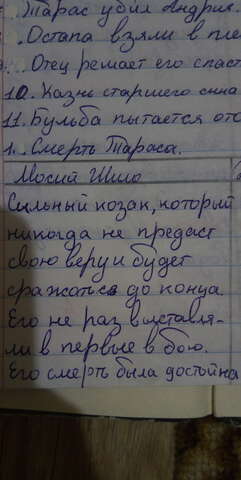 Тарас убил Андрия.
Остапа взяли в пле
Отец решает его спаст
10. Казнь старшего сына
11. Бульба пытается ото
1. Смерть Тараса.
Мосий Шило
Сильный козак, который
никогда не предаст
свою веру и будет
сражаться до конца.
Его не раз выставля-
ли в первые в бою.
Его смерть была достойна